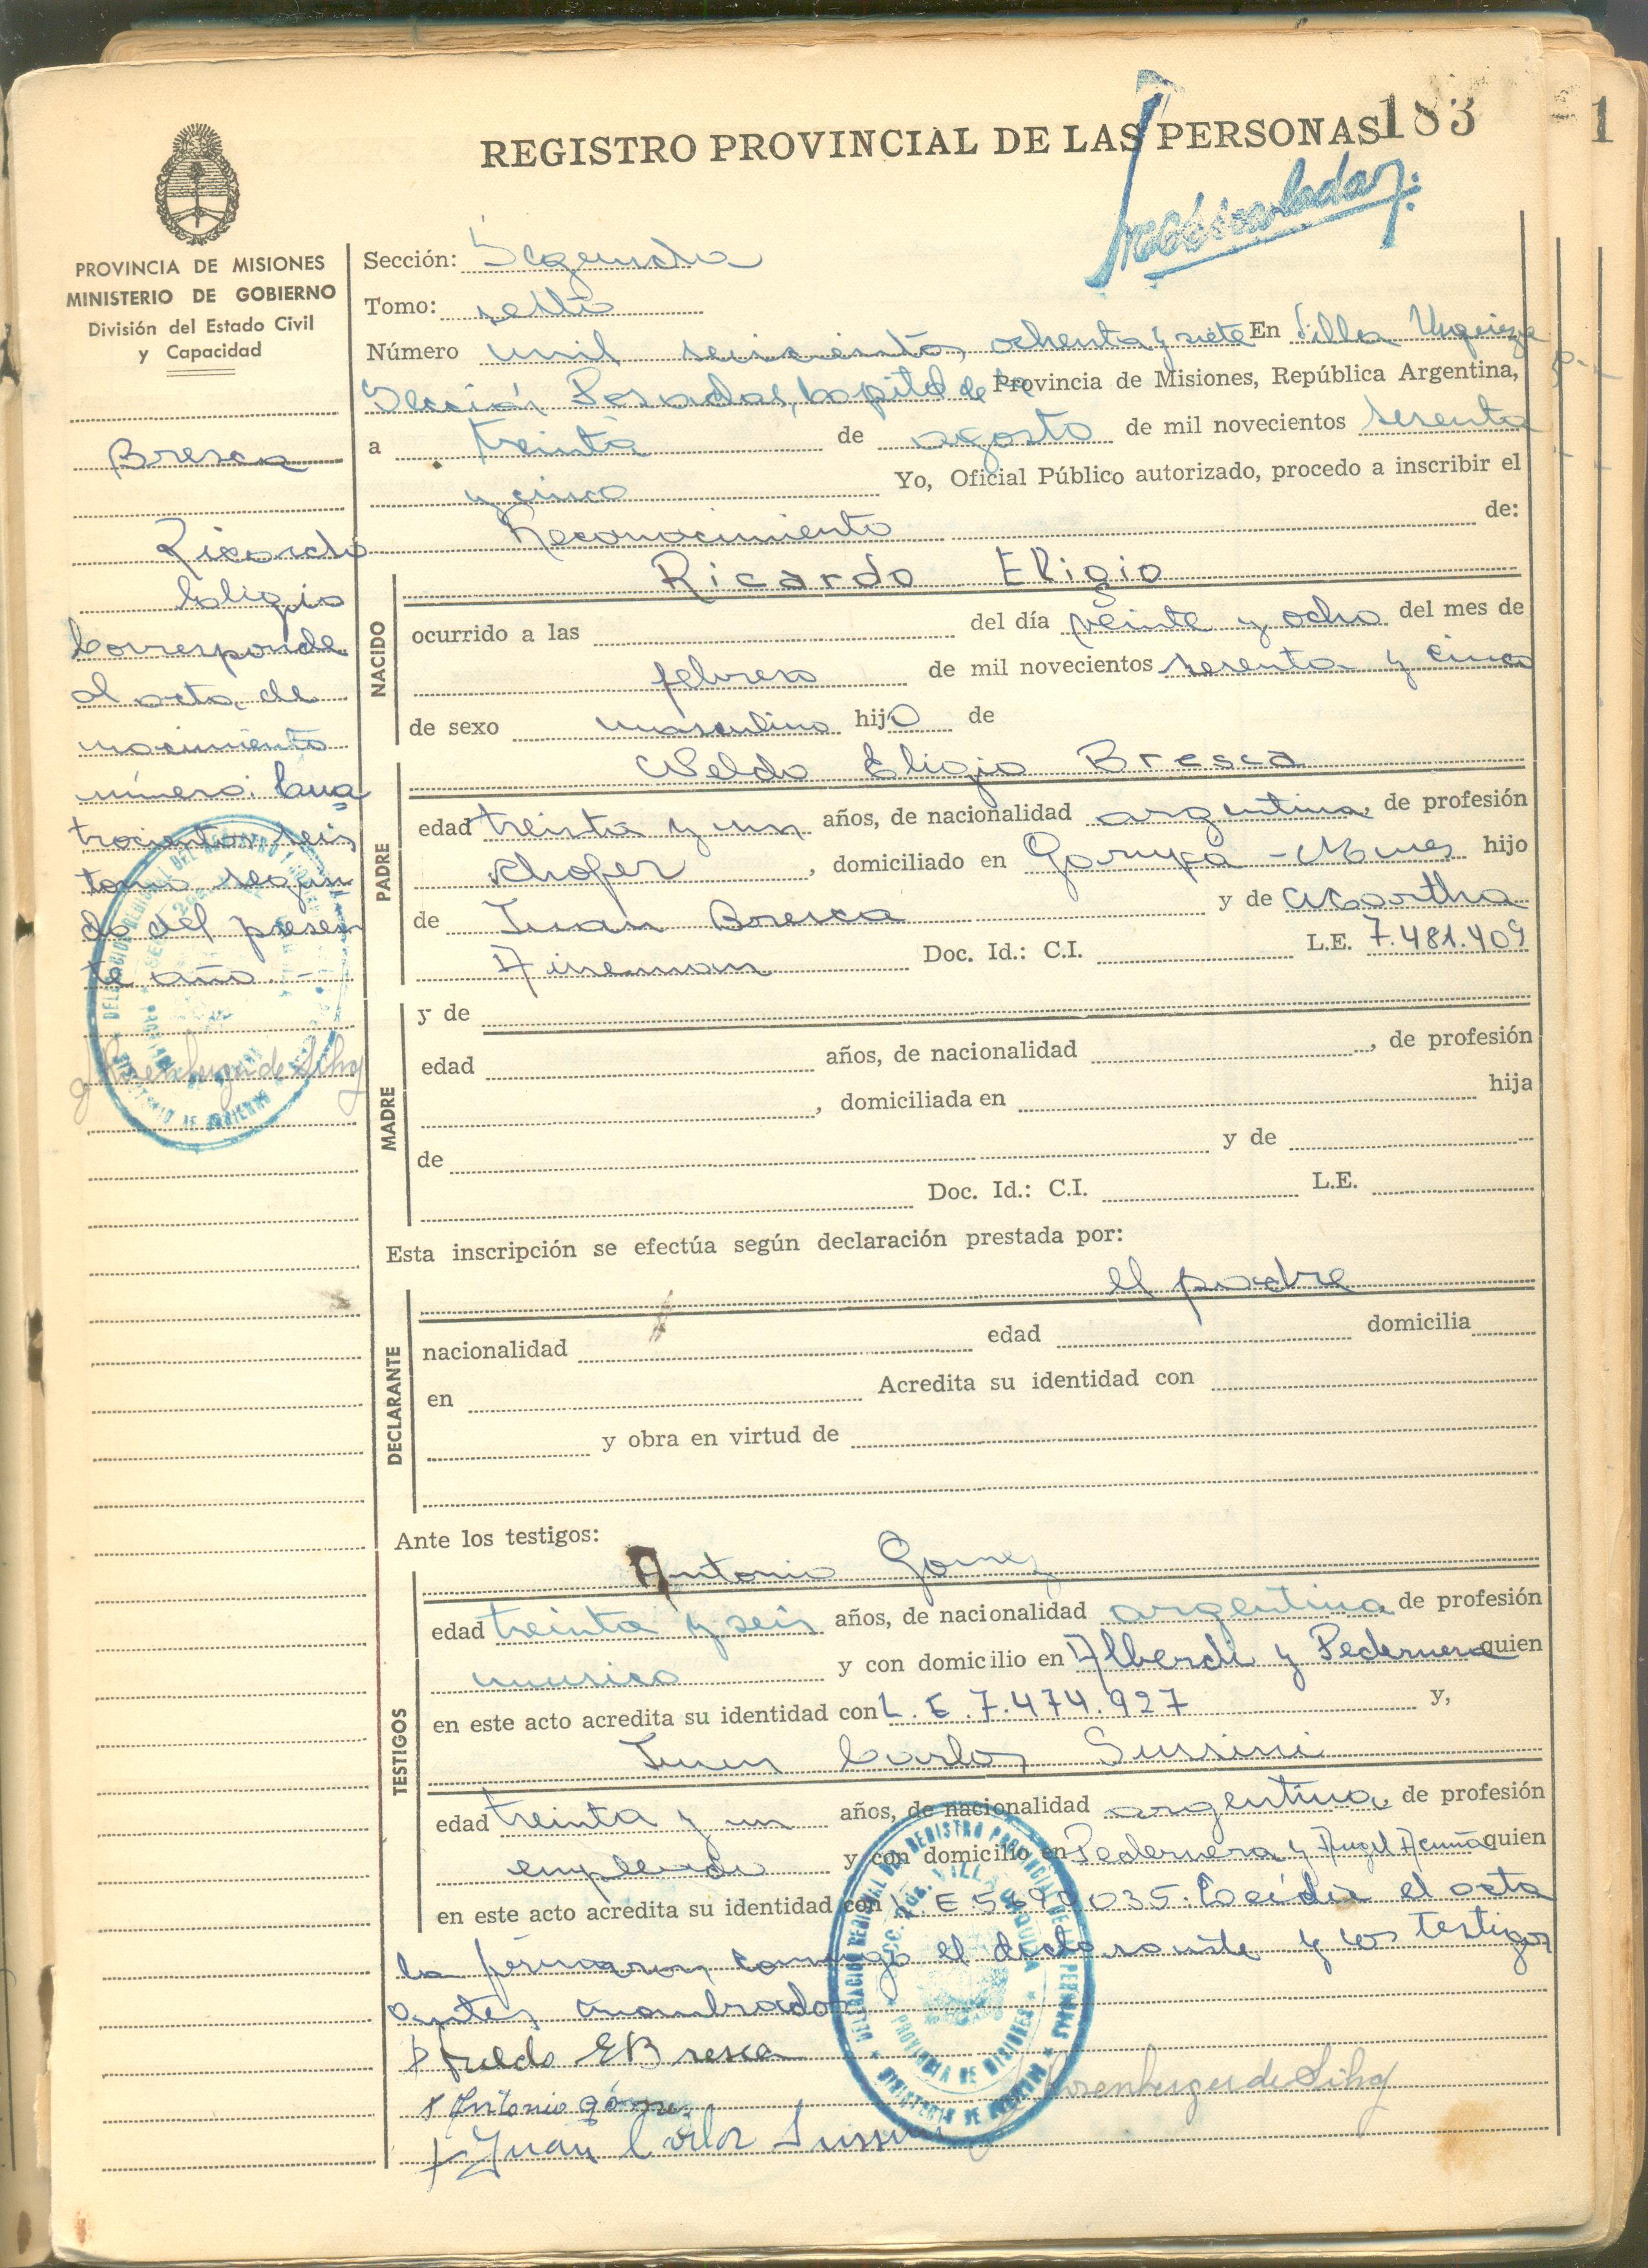 REGISTRO PROVINCIAL DE LAS PERSONAS 183
1
PROVINCIA DE MISIONES
MINISTERIO DE GOBIERNO
División del Estado Civil
y Capacidad
Bresca
Ricardo
Eligio
Corresponde
al acta de
nacimiento
número: Cua
trocientos seis
tomo segun
do del presen
te año.-
Sección: Segunda
Tomo: sexto
Número mil seiscientos ochenta y siete En Villa Urquiza
Sección Posadas, Capital de la Provincia de Misiones, República Argentina,
a treinta de agosto de mil novecientos sesenta
y cinco Yo, Oficial Público autorizado, procedo a inscribir el
Reconocimiento de:
NACIDO
Ricardo Eligio
ocurrido a las del día veinte y ocho del mes de
febrero de mil novecientos sesenta y cinco
de sexo masculino hijo de
PADRE
Eligio Bresca
edad treinta y un años, de nacionalidad argentina, de profesión
chofer, domiciliado en Garupa - Mnes hijo
de Juan Bresca y de Martha
Doc. Id.: C.I. L.E. 7.481.409
MADRE
y de
edad años, de nacionalidad , de profesión
, domiciliada en hija
de y de
Doc. Id.: C.I. L.E.
Esta inscripción se efectúa según declaración prestada por:
el padre
DECLARANTE
nacionalidad edad domicilia
en Acredita su identidad con
y obra en virtud de
Ante los testigos:
TESTIGOS
Antonio Gomez
edad treinta y seis años, de nacionalidad argentina de profesión
musico y con domicilio en Alberdi y Pedernera quien
en este acto acredita su identidad con L.E. 7.474.927 y,
Juan Carlos Sussini
edad treinta y un años, de nacionalidad argentina, de profesión
empleado y con domicilio en Pedernera y Angel Acuña quien
en este acto acredita su identidad con L E Leída el acta
la firmaron conmigo el declarante y los testigos
antes nombrados
E Bresca
Antonio Gómez
Juan Carlos Sussini
DELEGACION REGIONAL DEL REGISTRO PROVINCIAL DE LAS PERSONAS
VILLA URQUIZA
PROVINCIA DE MISIONES
MINISTERIO DE GOBIERNO